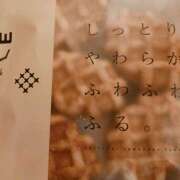 しっとり
やわらか
ふわふわ
ふる。